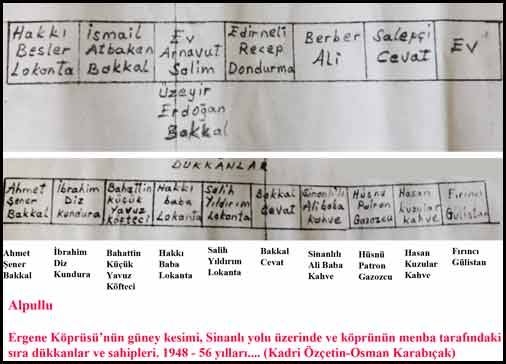 Hakkı
Besler
Lokanta
İsmail
Atbakan
Bakkal
Ev
Arnavut
Salim
Üzeyir
Erdoğan
Bakkal
Edirneli
Recep
Dondurma
Berber
Ali
Salepçi
Cevat
Ev
DÜKKÂNLAR
Ahmet
Şener
Bakkal
İbrahim
Diz
Kundura
Bahattin
Küçük
Yavuz
Köfteci
Hakkı
baba
Lokanta
Salih
Yıldırım
Lokanta
Bakkal
Cevat
Sinanlılı
Ali baba
kahve
Hüsnü
Patron
Gazozcu
Hasan
kuzular
kahve
Fırıncı
Gülistan
Ahmet
Şener
Bakkal
İbrahim
Diz
Kundura
Bahattin
Küçük
Yavuz
Köfteci
Hakkı
Baba
Lokanta
Salih
Yıldırım
Lokanta
Bakkal
Cevat
Sinanlılı
Ali Baba
Kahve
Hüsnü
Patron
Gazozcu
Hasan
Kuzular
Kahve
Fırıncı
Gülistan
Alpullu
Ergene Köprüsü’nün güney kesimi, Sinanlı yolu üzerinde ve köprünün menba tarafındaki
sıra dükkanlar ve sahipleri. 1948 - 56 yılları.... (Kadri Özçetin-Osman Karabıçak)